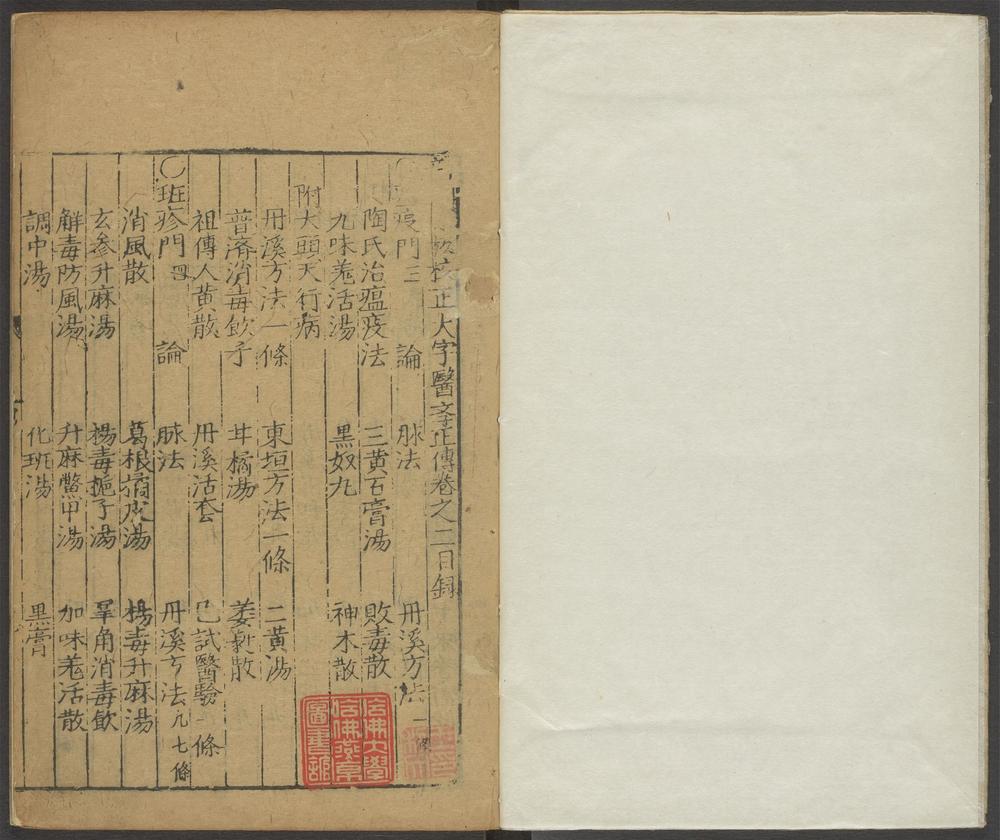 校正大字醫學正傳卷之二目錄
疫門三 論 脉法 丹溪方法一條
陶氏治瘟疫法 三黃石膏湯 敗毒散
九味羗活湯 黑奴丸 神木散
附大頭天行病
丹溪方法一條 東垣方法一條 二黃湯
普濟消毒飲子 甘橘湯 姜蚕散
祖傳人黃散 丹溪活套 已試醫驗一條
〇班疹門四 論 脉法 丹溪方法凡七條
消風散 葛根湯 楊毒升麻湯
玄參升麻湯 楊毒梔子湯 犀角消毒飲
解毒防風湯 升麻鱉甲湯 加味羗活散
調中湯 化班湯 黒膏
佛大學
佛燕京
圖書館